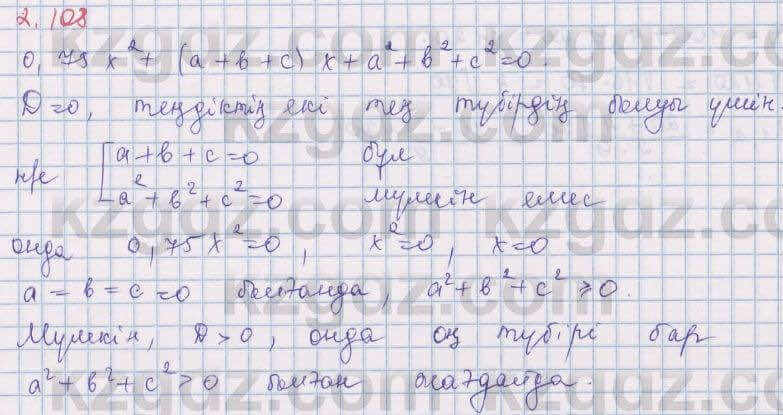 2.108
0,75x² + (a+b+c)x + a² + b² + c² = 0.
D=0, теңдіктің екі тең түбірдің болуы үшін.
н/е [a+b+c=0 бұл
a²+b²+c²=0 мүмкін емес
онда 0,75x²=0, x²=0, x=0
a=b=c=0 болғанда, a²+b²+c² ⩾ 0.
Мүмкін, D>0, онда оң түбірі бар
a²+b²+c²>0 болған жағдайда.
kzgdz.com